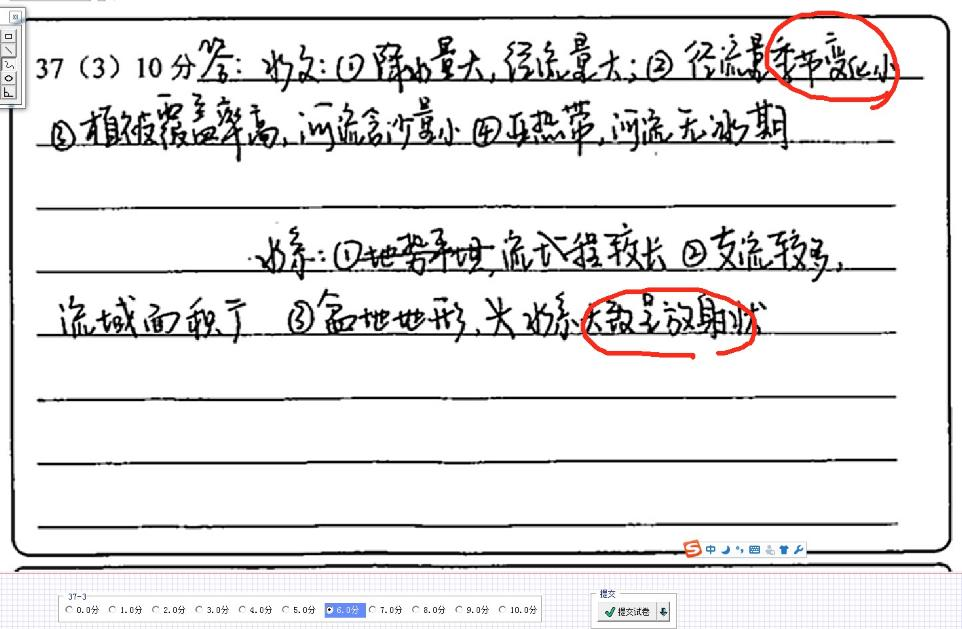 37（3）10分 答：水文：①降水量大，径流量大；②径流量季节变化小
③植被覆盖率高，河流含沙量小 ④亚热带，河流无冰期
水系：①地势平坦，流程较长 ②支流较多，
流域面积广 ③盆地地形，水系大致呈放射状
中
37-3
0.0分 1.0分 2.0分 3.0分 4.0分 5.0分 6.0分 7.0分 8.0分 9.0分 10.0分
提交
提交试卷